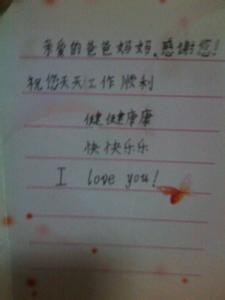 亲爱的爸爸妈妈、感谢您!
祝您天天工作顺利
健健康康
快快乐乐
I love you!